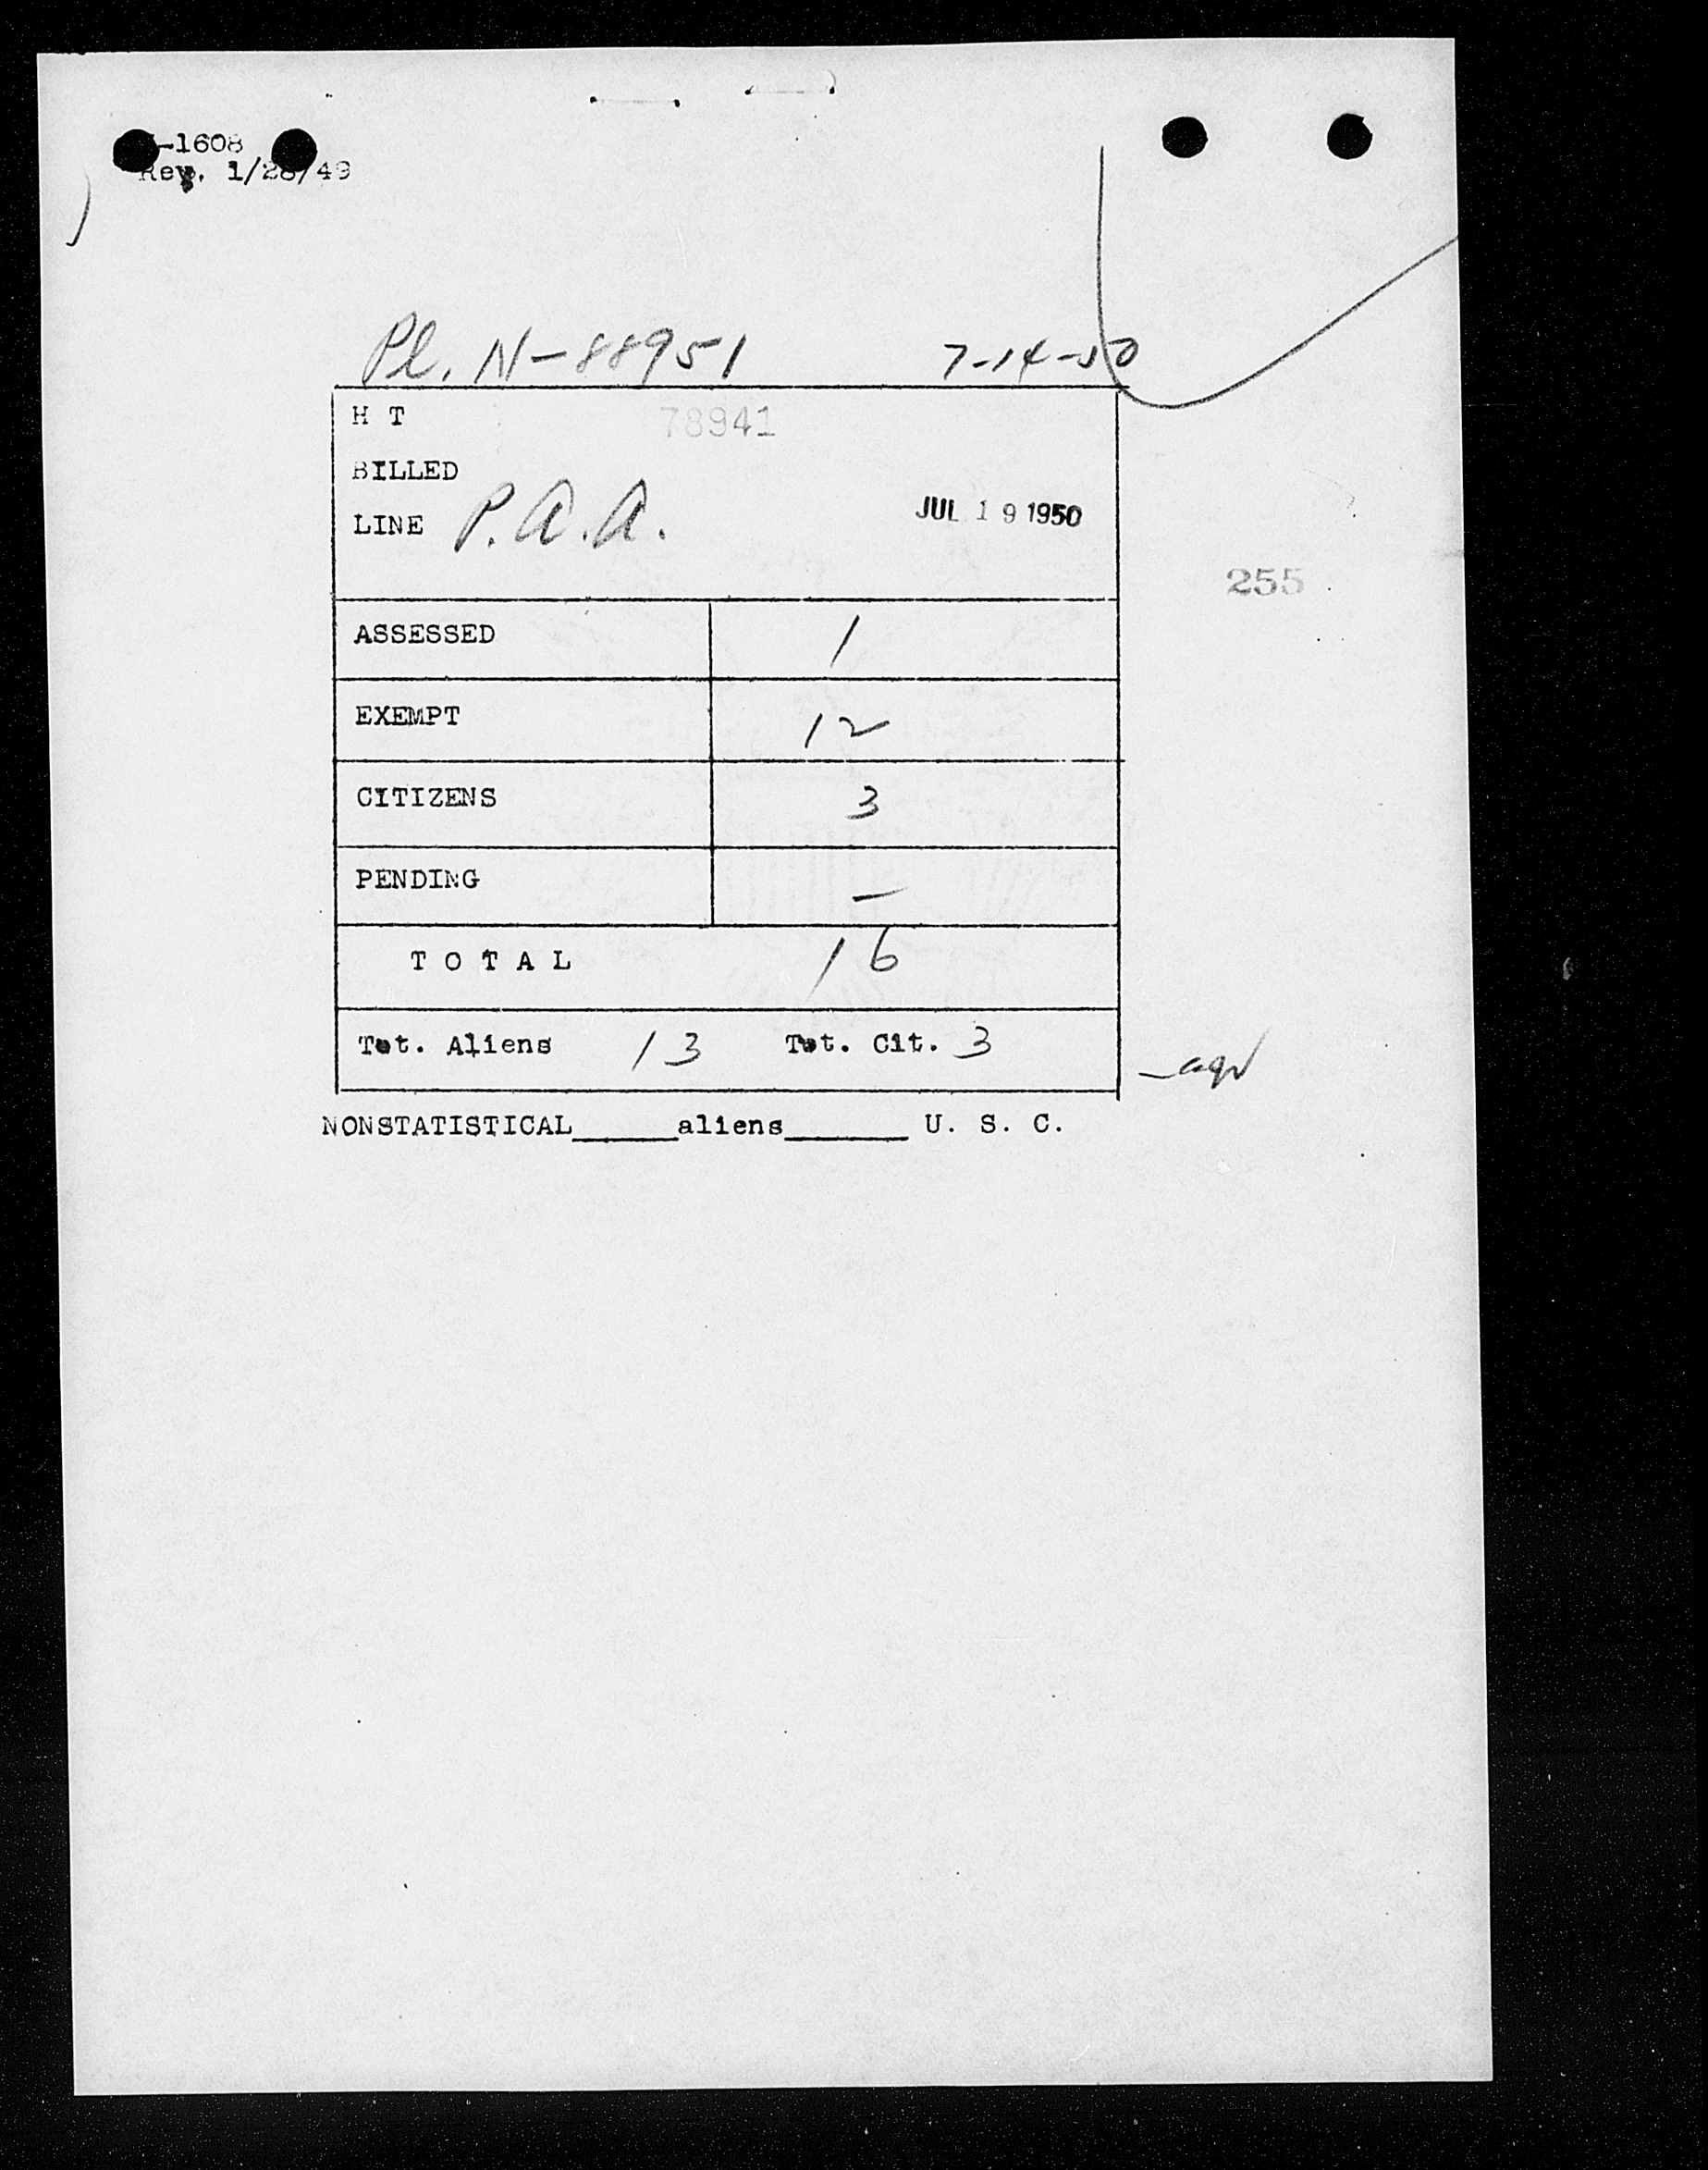 -1608
Rev. 1/28/49
Pl. N-88951 7-14-50
H T 78941
BILLED
LINE P.A.A. JUL 19 1950
255
ASSESSED 1
EXEMPT 12
CITIZENS 3
PENDING –
T O T A L 16
Tot. Aliens 13 Tot. Cit. 3
NONSTATISTICAL______aliens_______ U. S. C.